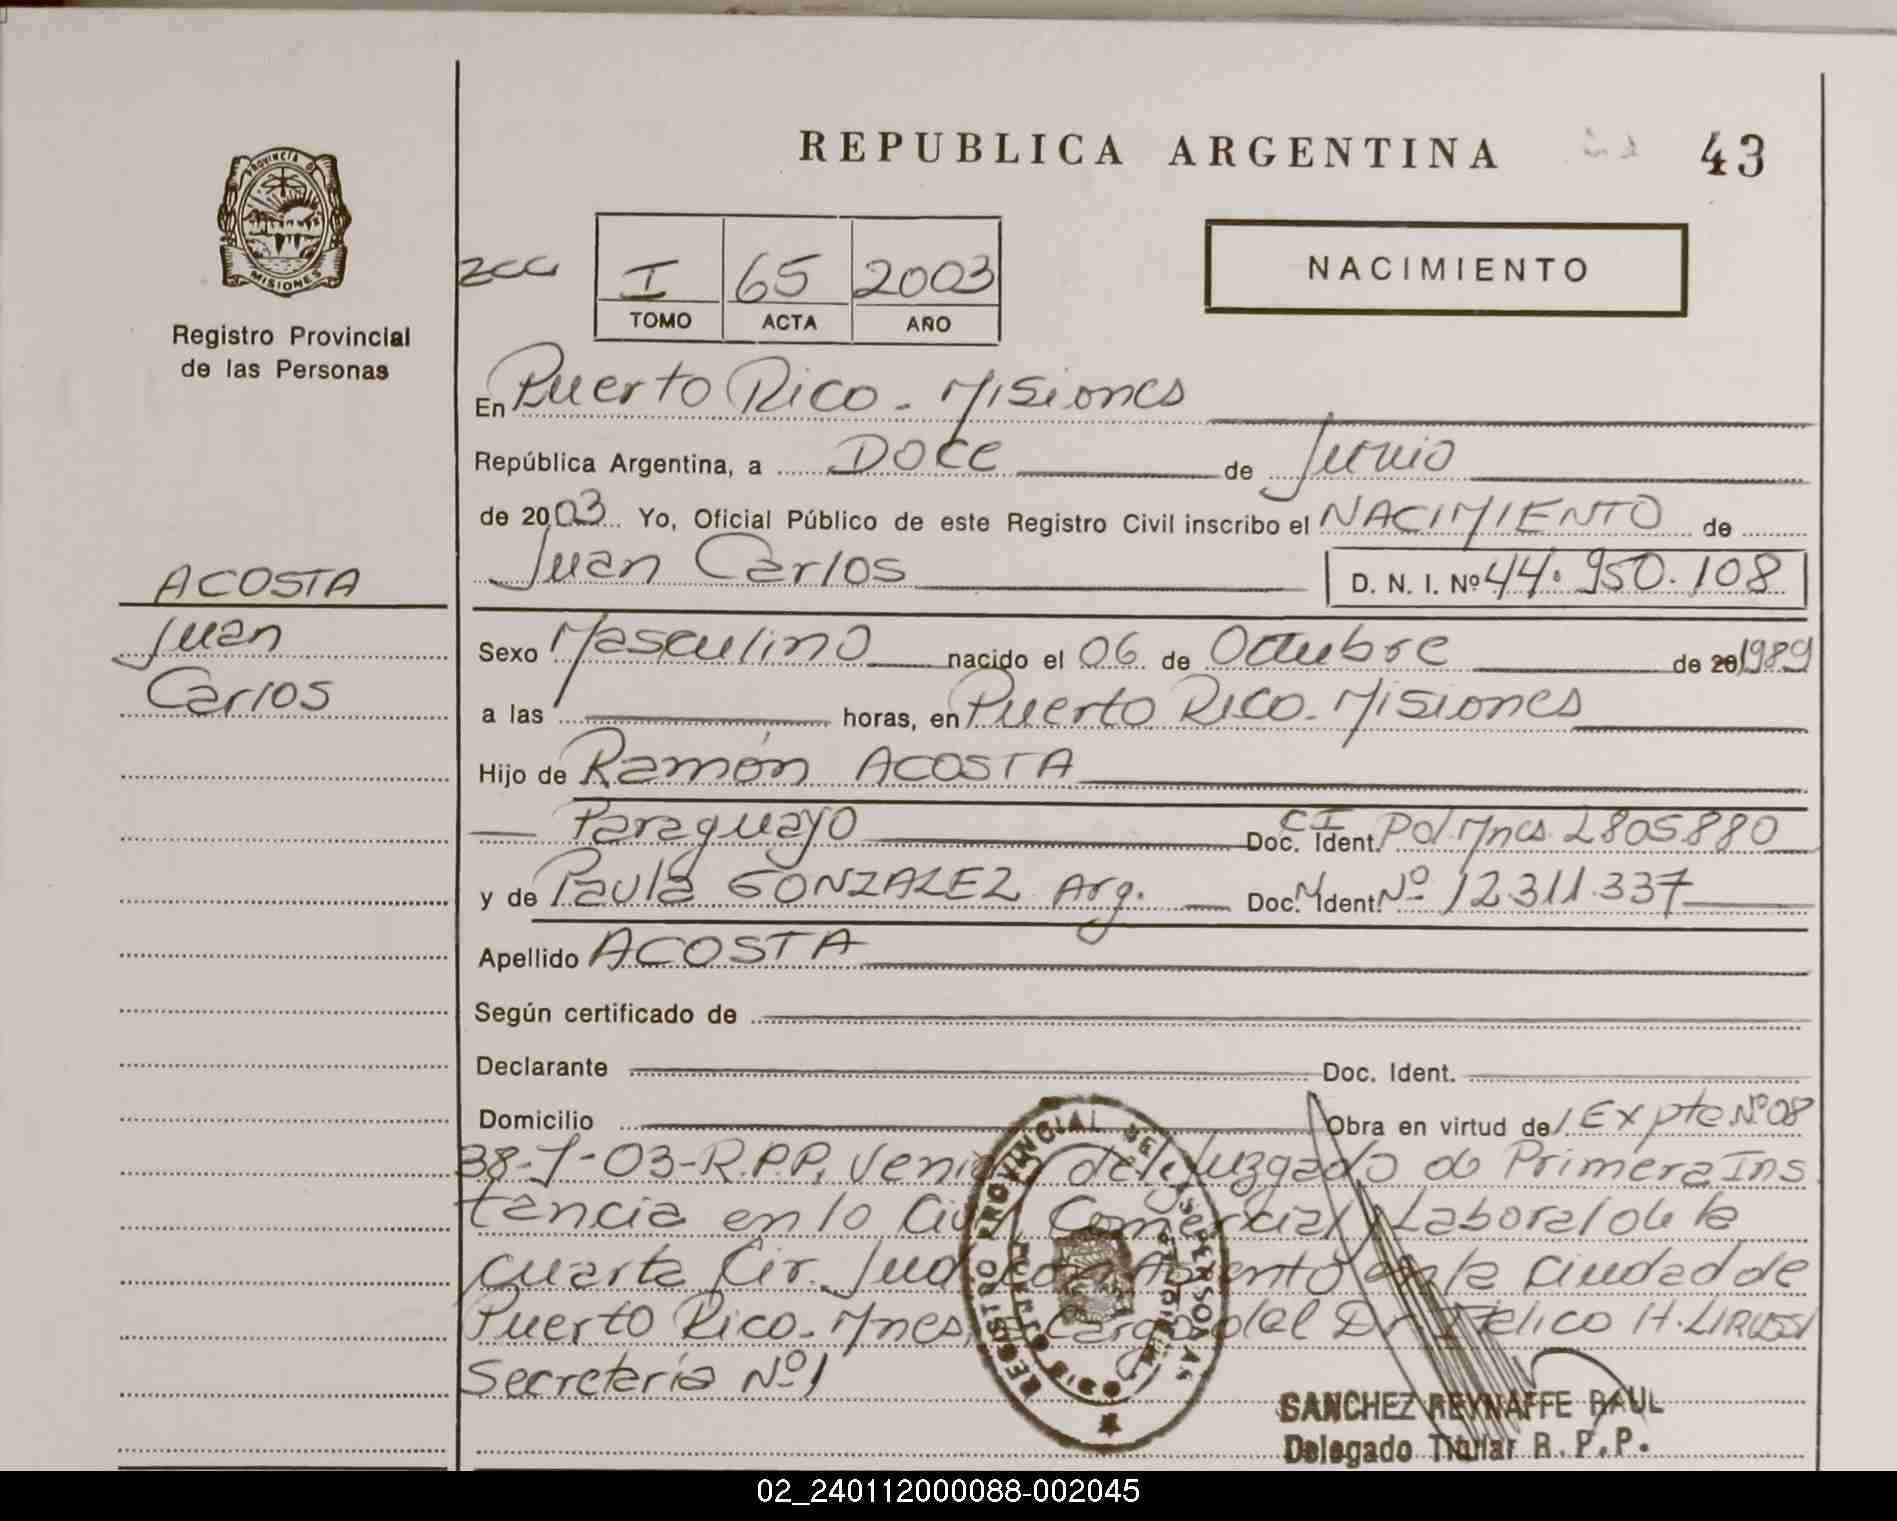 REPUBLICA ARGENTINA
43
PROVINCIA D
MISIONES
Registro Provincial
de las Personas
ACOSTA
Juan
Carlos
2CC
I 65 2003
TOMO ACTA AÑO
NACIMIENTO
En Puerto Rico - Misiones
República Argentina, a Doce de Junio
de 2003 Yo, Oficial Público de este Registro Civil inscribo el NACIMIENTO de
Juan Carlos D. N. I. Nº 44.950.108
Sexo Masculino nacido el 06 de Octubre de 20 1989
a las horas, en Puerto Rico - Misiones
Hijo de Ramón ACOSTA
Paraguayo Doc. Ident. CI Pol. Mnes. 2805880
y de Paula GONZALEZ Arg. Doc. Ident. M Nº 12.311.337
Apellido ACOSTA
Según certificado de
Declarante Doc. Ident.
Domicilio Obra en virtud de Expte Nº 08
38-J-03-R.P.P, del Juzgado de Primera Ins
tancia en lo Civil, Comercial y Laboral de la
cuarta Cir. Jud. con Asiento en la Ciudad de
Puerto Rico - Mnes, a Cargo del Dr. H. LIRUSSI
Secretaría Nº 1
REGISTRO PROVINCIAL DE LAS PERSONAS
SANCHEZ REYNAFFE RAUL
Delegado Titular R. P. P.
02_240112000088-002045